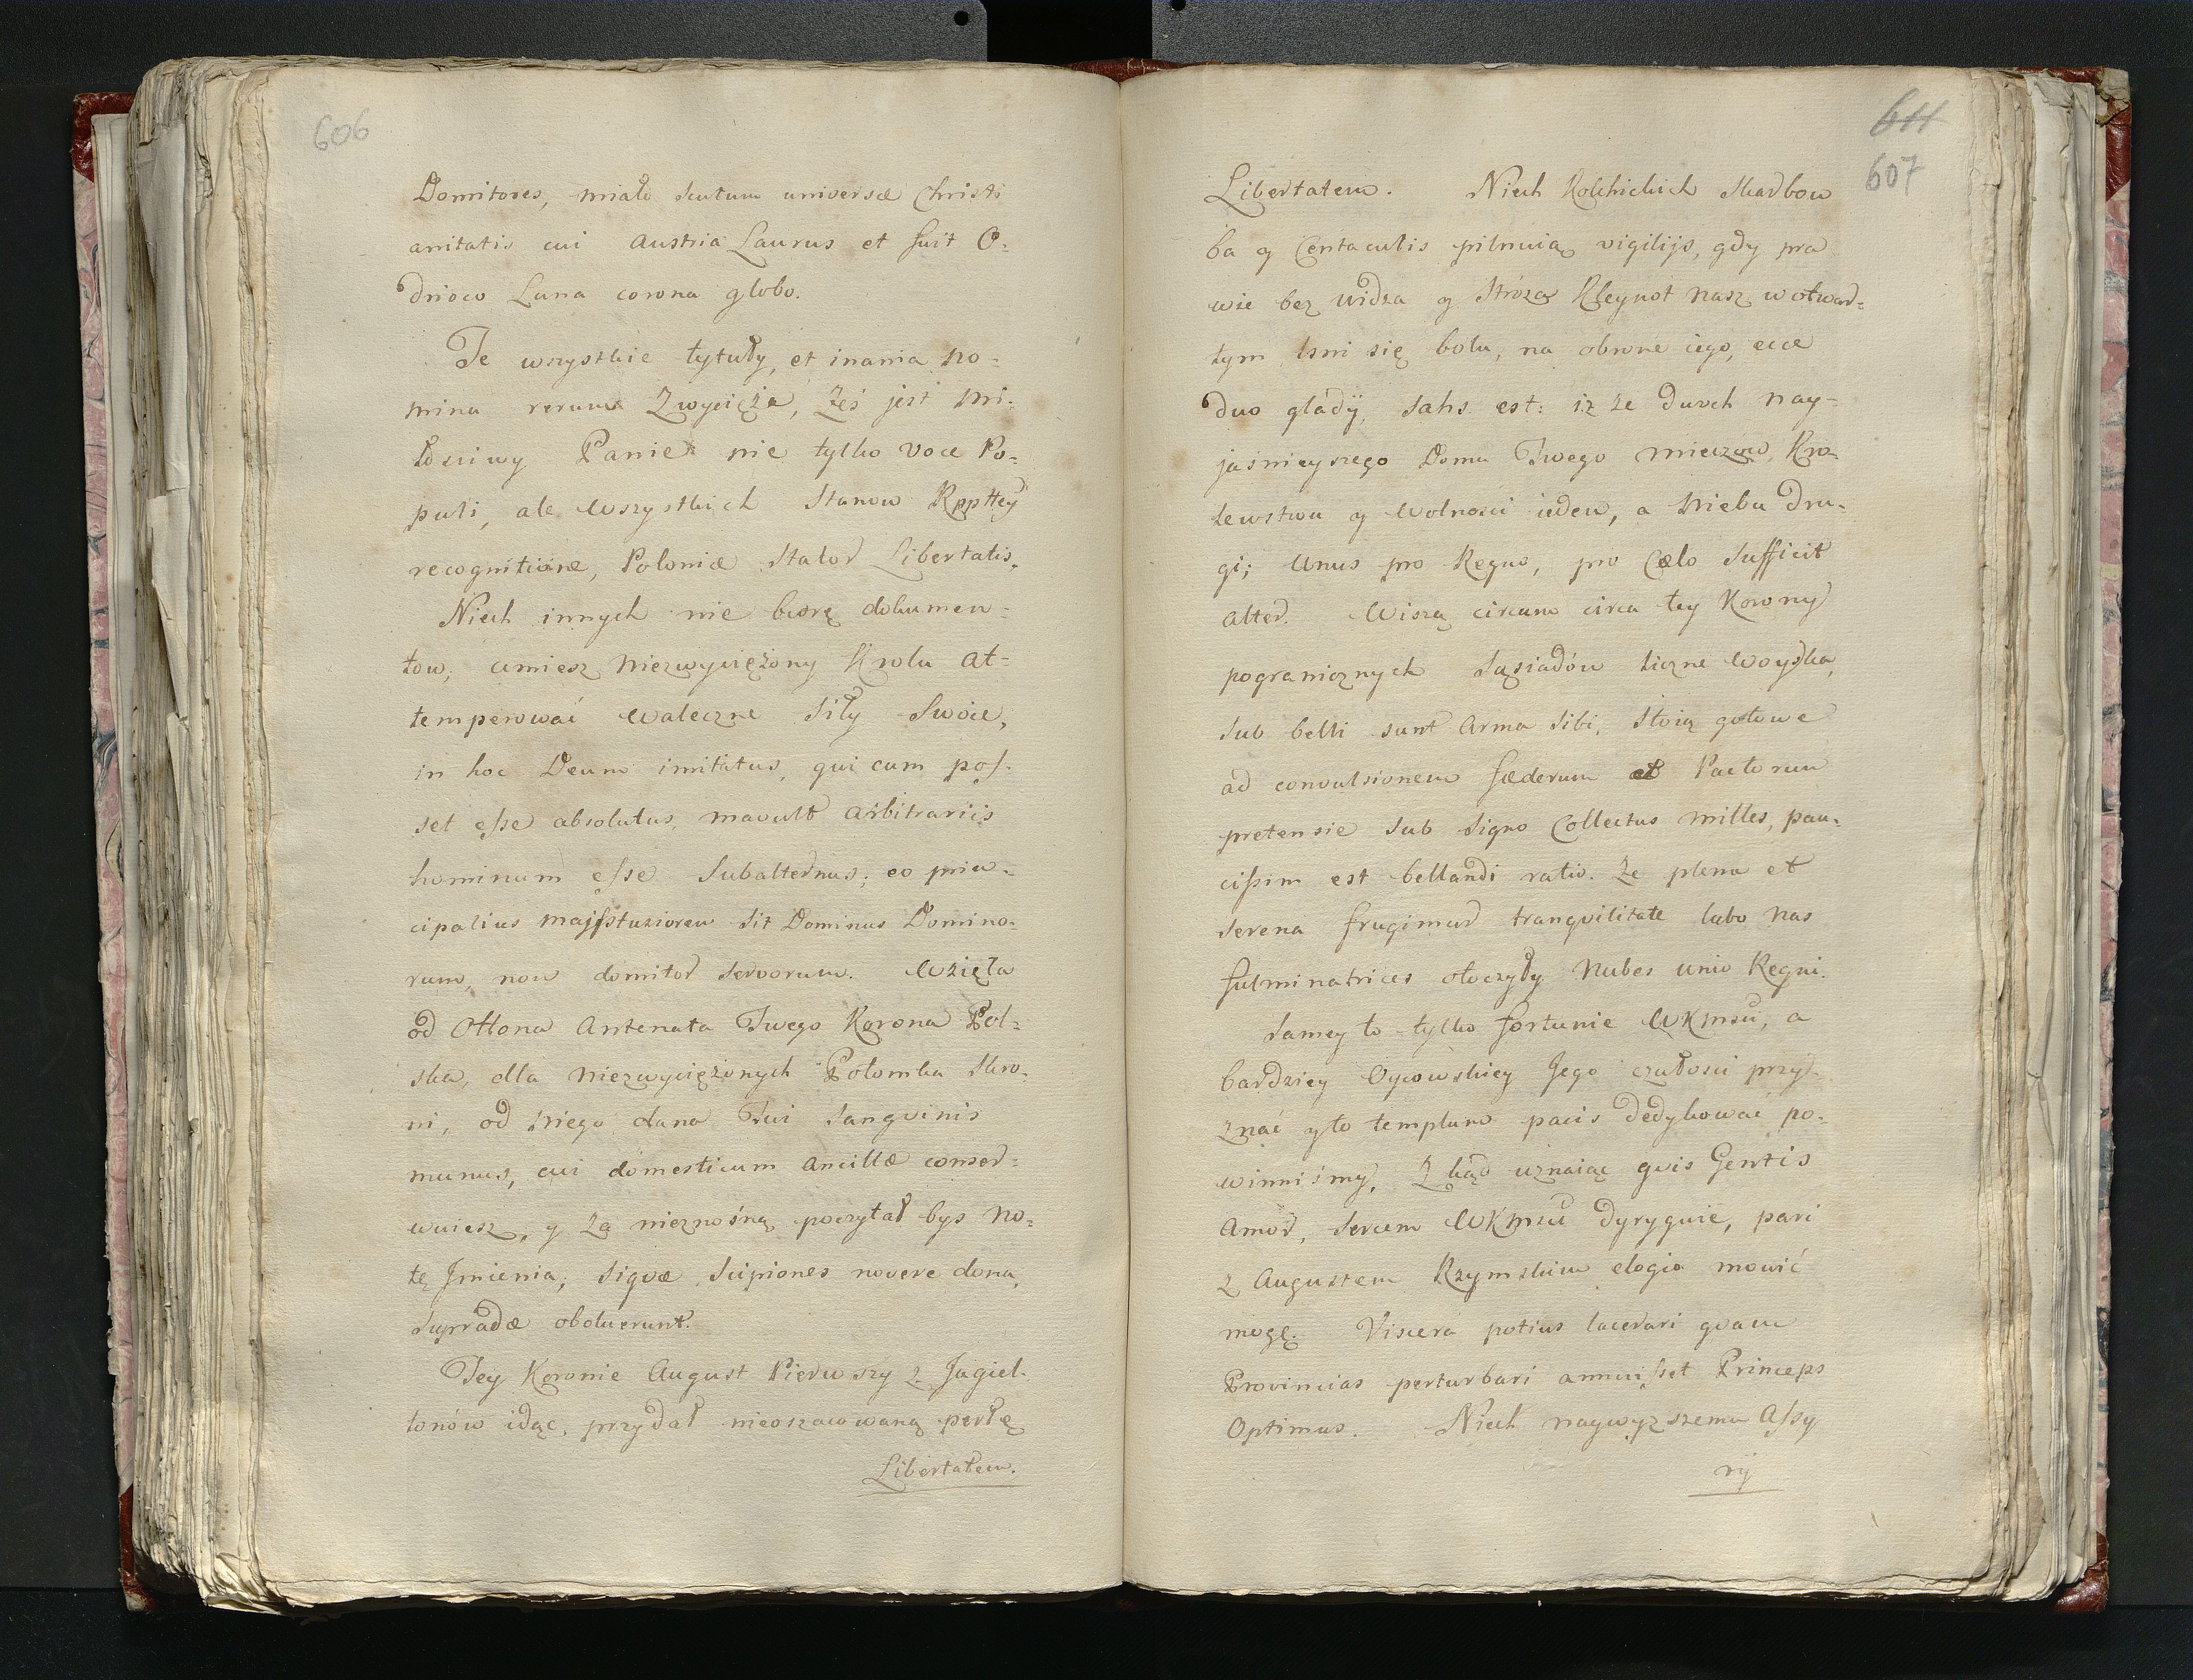 606
Domitores, miało scutum universæ Christi
anitatis cui Austria Laurus et fuit O-
drisco Luna corona globo.
Te wszystkie tytuły, et inania no-
mina rerum zwycięża, żeś jest Mi-
łosciwy Panie nie tylko voce Po-
puli, ale wszystkich Stanow Rpptey
recognitione, Poloniæ Stator Libertatis.
Niech innych nie biorę dokumen-
tow; umiesz Niezwyciężony Krolu at-
temperować waleczne siły swoie,
in hoc Deum imitatus, qui cum pos-
set esse absolutus, mavult arbitrariis
hominum esse subalternus; eo prin-
cipalius
sit Dominus Domino-
rum, non domitor servorum. Wzięta
od Ottona Antenata Twego Korona Pol-
ska, dla niezwyciężonych Potomka skro-
ni, od niego dana Tui Sangvinis
munus, cui domesticum ancillæ conser-
wuiesz, y za nieznośną poczytał bys no-
tę Jmienia, siqvæ Scipiones novere dona,
oboluerunt.
Tey Koronie August Pierwszy z Jagiel-
lonów idąc, przydał nieoszacowaną perłę
Libertatem.
611
607
Libertatem. Niech Kolchickich Skarbow
ba y Centaculis pilnuią vigilijs, gdy pra
wie bez widza y Stróza Kleynot nasz w otwar-
tym lsni się polu, na obrone iego, ecce
duo gladij, satis est: iż ze dwoch nay-
jaśnieyszego Domu Twego mieczow, Kro-
lewstwu y Wolnosci ieden, a Niebu dru-
gi; Unus pro Regno, pro Cælo sufficit
alter. Wiszą circum circa tey Korony
pogranicznych Sąsiadów liczne woyska,
sub belli sunt Arma sibi, stoią gotowe
ad convulsionem fæderum et Pactorum
pretensie sub signo Collectus milles, pau-
cißim est bellandi ratio. Ze plena et
serena frugimur tranqvilitate lubo nas
fulminatrices otoczyły Nubes unio Regni.
Samey to tylko fortunie WKmsci, a
bardziey Oycowskiey Jego czułosci przy-
znać y to templum pacis dedykować po-
winniśmy. Zkąd uznaiąc qvis Gentis
Amor, sercem WKmsci dyryguie, pari
z Augustem Rzymskim elogio mowić
mogę. Viscera potius lacerari qvam
Provincias perturbari annuisset Princeps
Optimus. Niech naywyzszemu Assy
rij